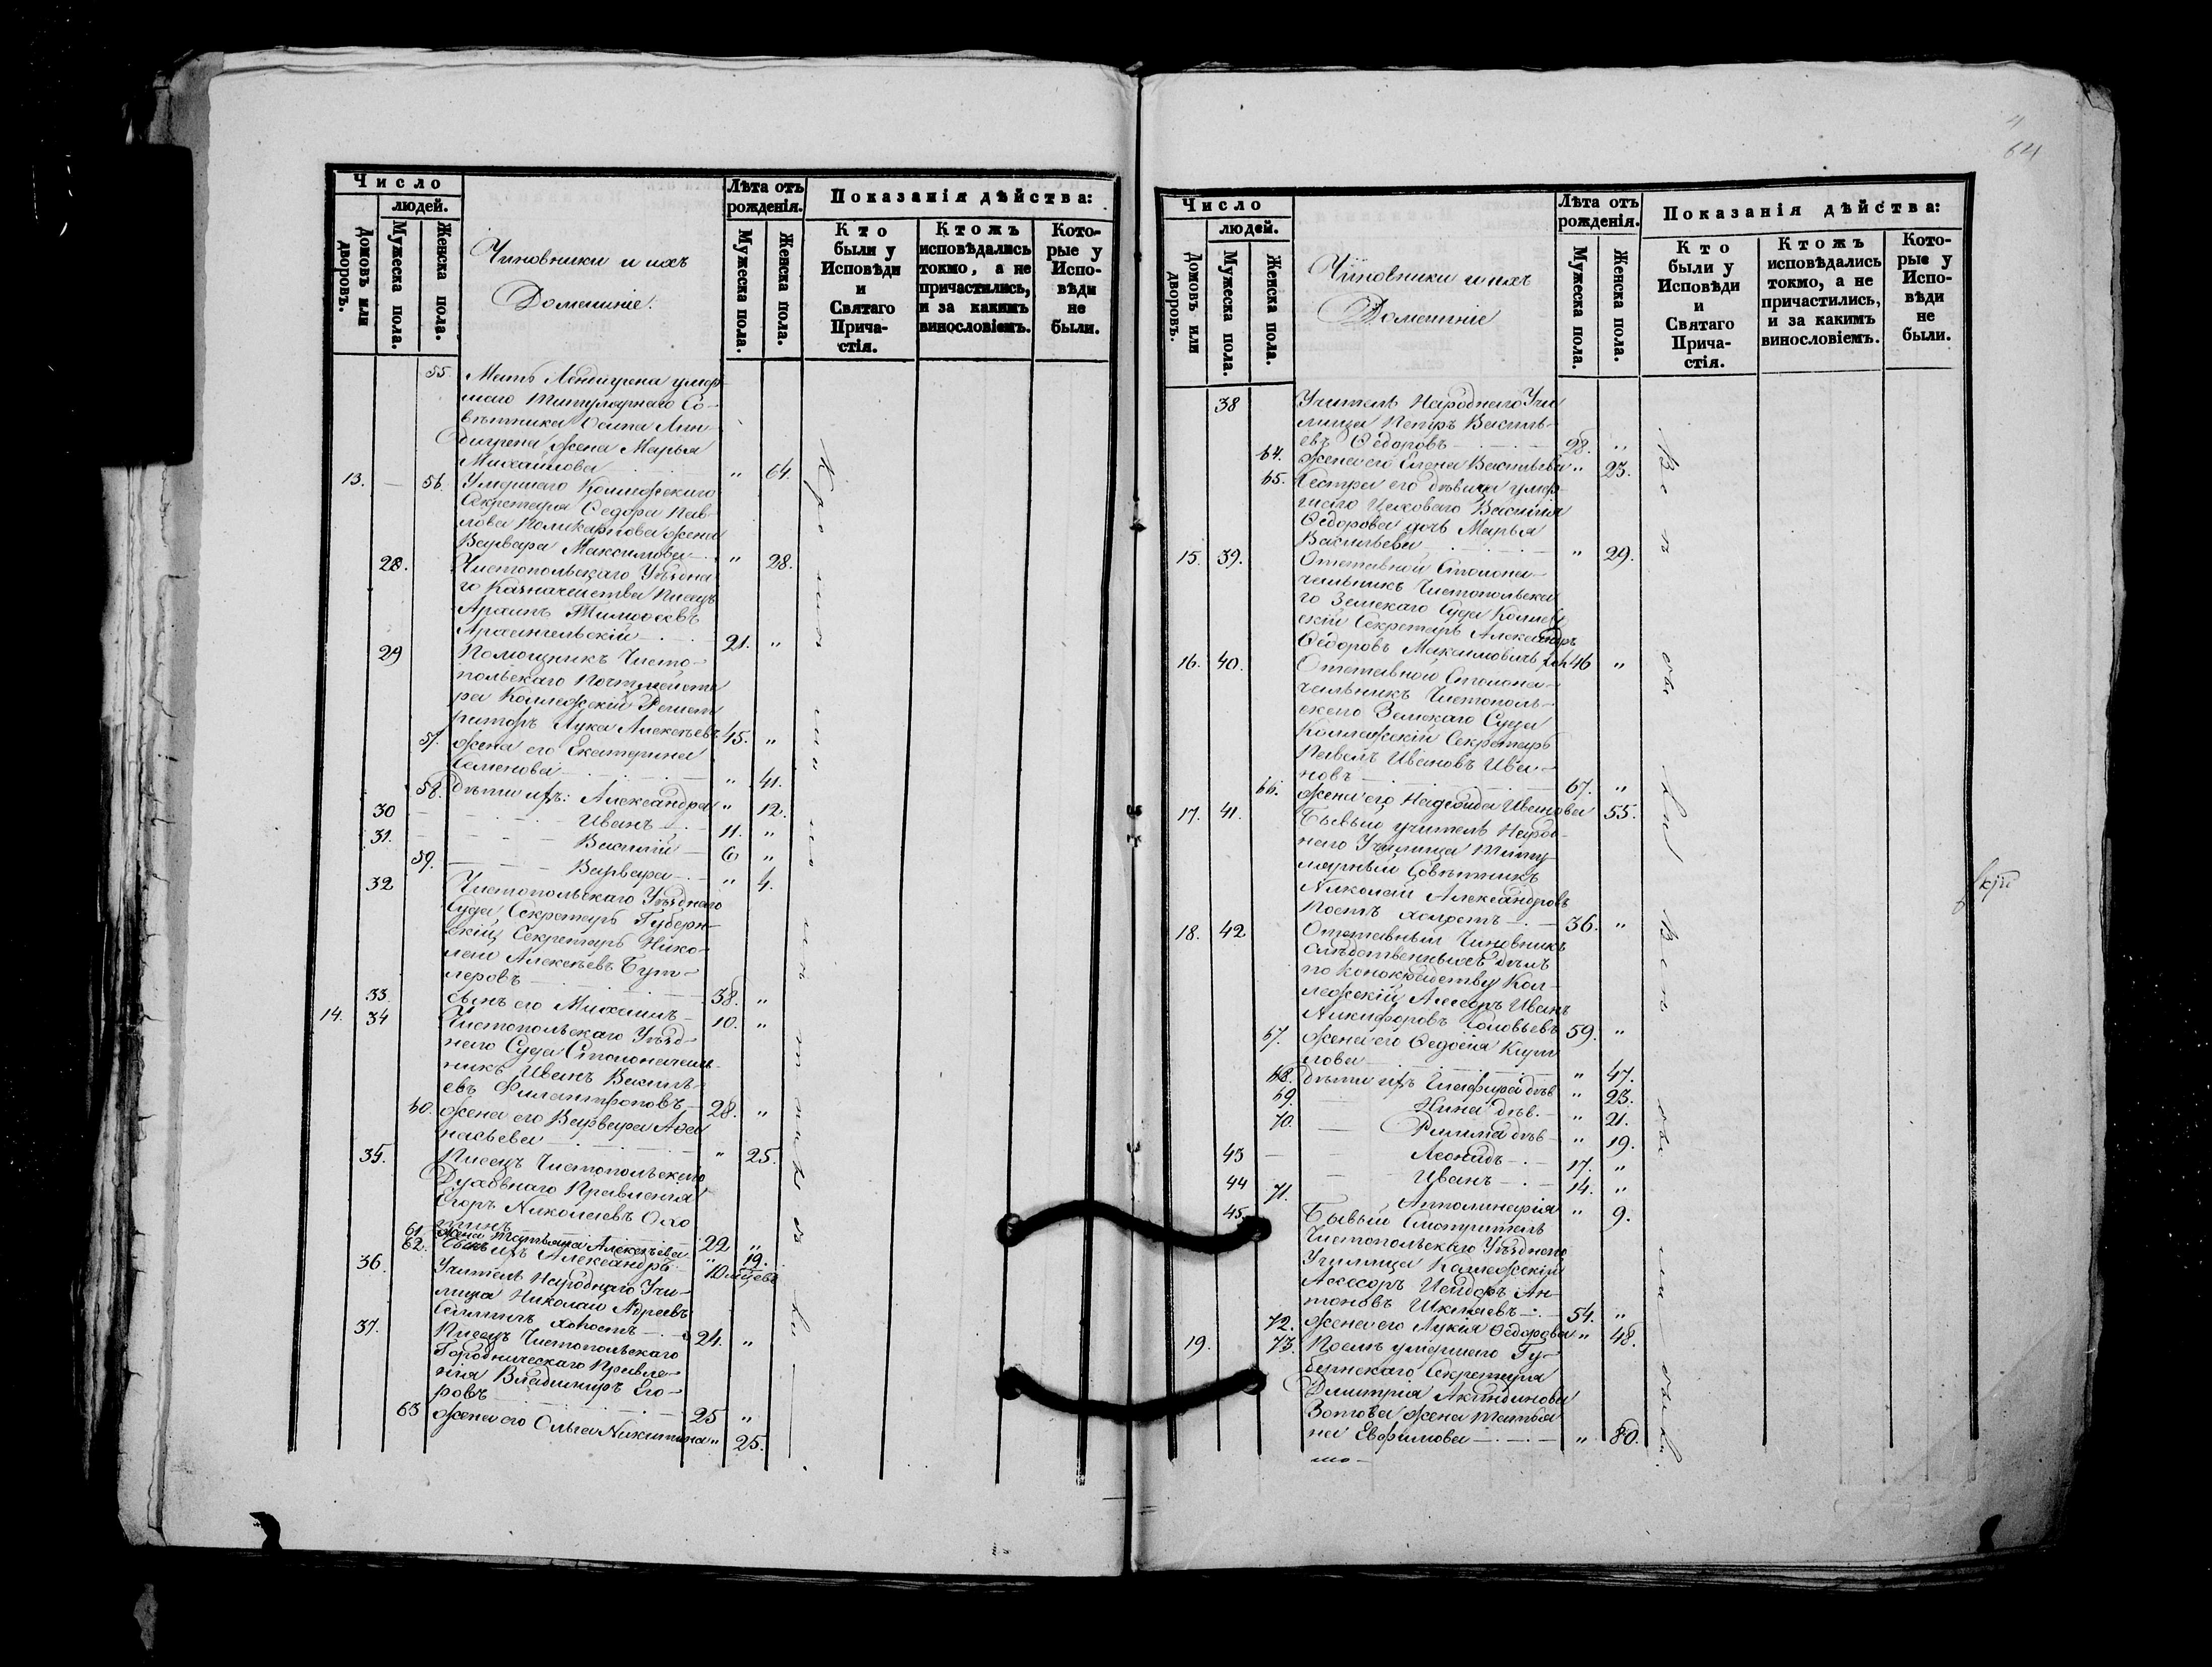 Число
людей.
Домовъ или дворовъ.
Мужеска пола.
Женска пола.
Чиновники и ихъ
Домашніе.
Лѣта отъ
рожденія.
Мужеска пола.
Женска пола.
Показанія дѣйства:
Кто
были у
Исповѣди
и
Святаго
Прича-
стія.
Ктожъ
исповѣдались
токмо, а не
причастились,
и за какимъ
винословіемъ.
Кото-
рые у
Испо-
вѣди
не
были.
55. Мать умер-
шаго Титулярнаго Со-
вѣтника Осипа Лин-
жена Марья
Михайлова " 64.
13. 56. Умершаго Коллежскаго
Секретаря Федора Пав-
лова Поликарпова жена
Варвара Максимова " 28.
28. Чистопольскаго Уѣздна
го Казначейства Писецъ
Тимофеевъ
Архангельскій 21. "
29 Помощникъ Чисто-
польскаго Почтмейсте
ра Коллежскій Регист
раторъ Лука Алексѣевъ 45. "
57. жена его Екатерина
Семенова " 41.
58. дѣти ихъ: Александра " 12.
30 Иванъ 11. "
31. Василій 6 "
59. Варвара " 4.
32 Чистопольскаго Уѣзднаго
Суда Секретарь Губерн-
скій Секретарь Нико-
лай Алексѣевъ Бут-
леровъ 38. "
33. сынъ его Михаилъ 10. "
14. 34 Чистопольскаго Уѣзд-
наго Суда Столоначаль-
никъ Иванъ Василь-
евъ Филантроповъ 28. "
60. жена его Варвара Афа
насьева " 25.
35. Писецъ Чистопольскаго
Духовнаго Правленія
Егоръ Николаевъ Охо
тинъ 22 "
61. жена Татьяна Алексѣева " 19.
62. сынъ ихъ Александръ
36. Учитель Народнаго Учи-
лища Николай
холостъ 24. "
37. Писецъ Чистопольскаго
Городническаго Правле-
нія Владимиръ Его-
ровъ 25 "
63 жена его Ольга Никитина " 25.
64
Число
людей.
Домовъ или дворовъ.
Мужеска пола.
Женска пола.
Чиновники и ихъ
Домашніе
Лѣта отъ
рожденія.
Мужеска пола.
Женска пола.
Показанія дѣйства:
Кто
были у
Исповѣди
и
Святаго
Прича-
стія.
Ктожъ
исповѣдались
токмо, а не
причастились,
и за какимъ
винословіемъ.
Кото-
рые у
Испо-
вѣди
не
были.
38 Учитель Народнаго Учи
лища Петръ Василь-
евъ Ѳедоровъ 28. "
64. жена его Елена Васильева " 23.
65. Сестра его дѣвица умер
шаго Цеховаго Василія
Ѳедорова дочь Марья
Васильева " 29.
15. 39. Отставной Столона-
чальникъ Чистопольска
го Земскаго Суда Коллеж
скій Секретарь Александръ
Ѳедоровъ Максимовичъ 46 "
16. 40. Отставной Столона-
чальникъ Чистополь-
скаго Земскаго Суда
Коллежскій Секретарь
Павелъ Ивановъ Ива-
новъ 67. "
66. жена его Надежда Иванова 55.
17. 41. Бывый учитель Народ-
наго Училища Титу-
лярный Совѣтникъ
Николай Александровъ
холостъ 36. "
18. 42 Отставный Чиновникъ
слѣдственныхъ дѣлъ
по Конокрадству Кол-
лежскій Ассесоръ Иванъ
Никифоровъ Соловьевъ 59. "
67. жена его Федосія Кирил
лова " 47.
68. дѣти ихъ Глафира дѣв " 23.
69. Нина дѣв. " 21.
70. Римма дѣв " 19.
43 Леонидъ 17. "
44 Иванъ 14. "
71. Апполинарія " 9.
45. Бывый Смотритель
Чистопольскаго Уѣзднаго
Училища Коллежскій
Ассесоръ Исидоръ Ан-
тоновъ Шкляевъ 54. "
72. жена его Лукія Ѳедорова " 48.
19. 73. Послѣ умершаго Гу-
бернскаго Секретаря
Дмитрія Акиндинова
Зотова жена Татья
на Евфимова " 80.